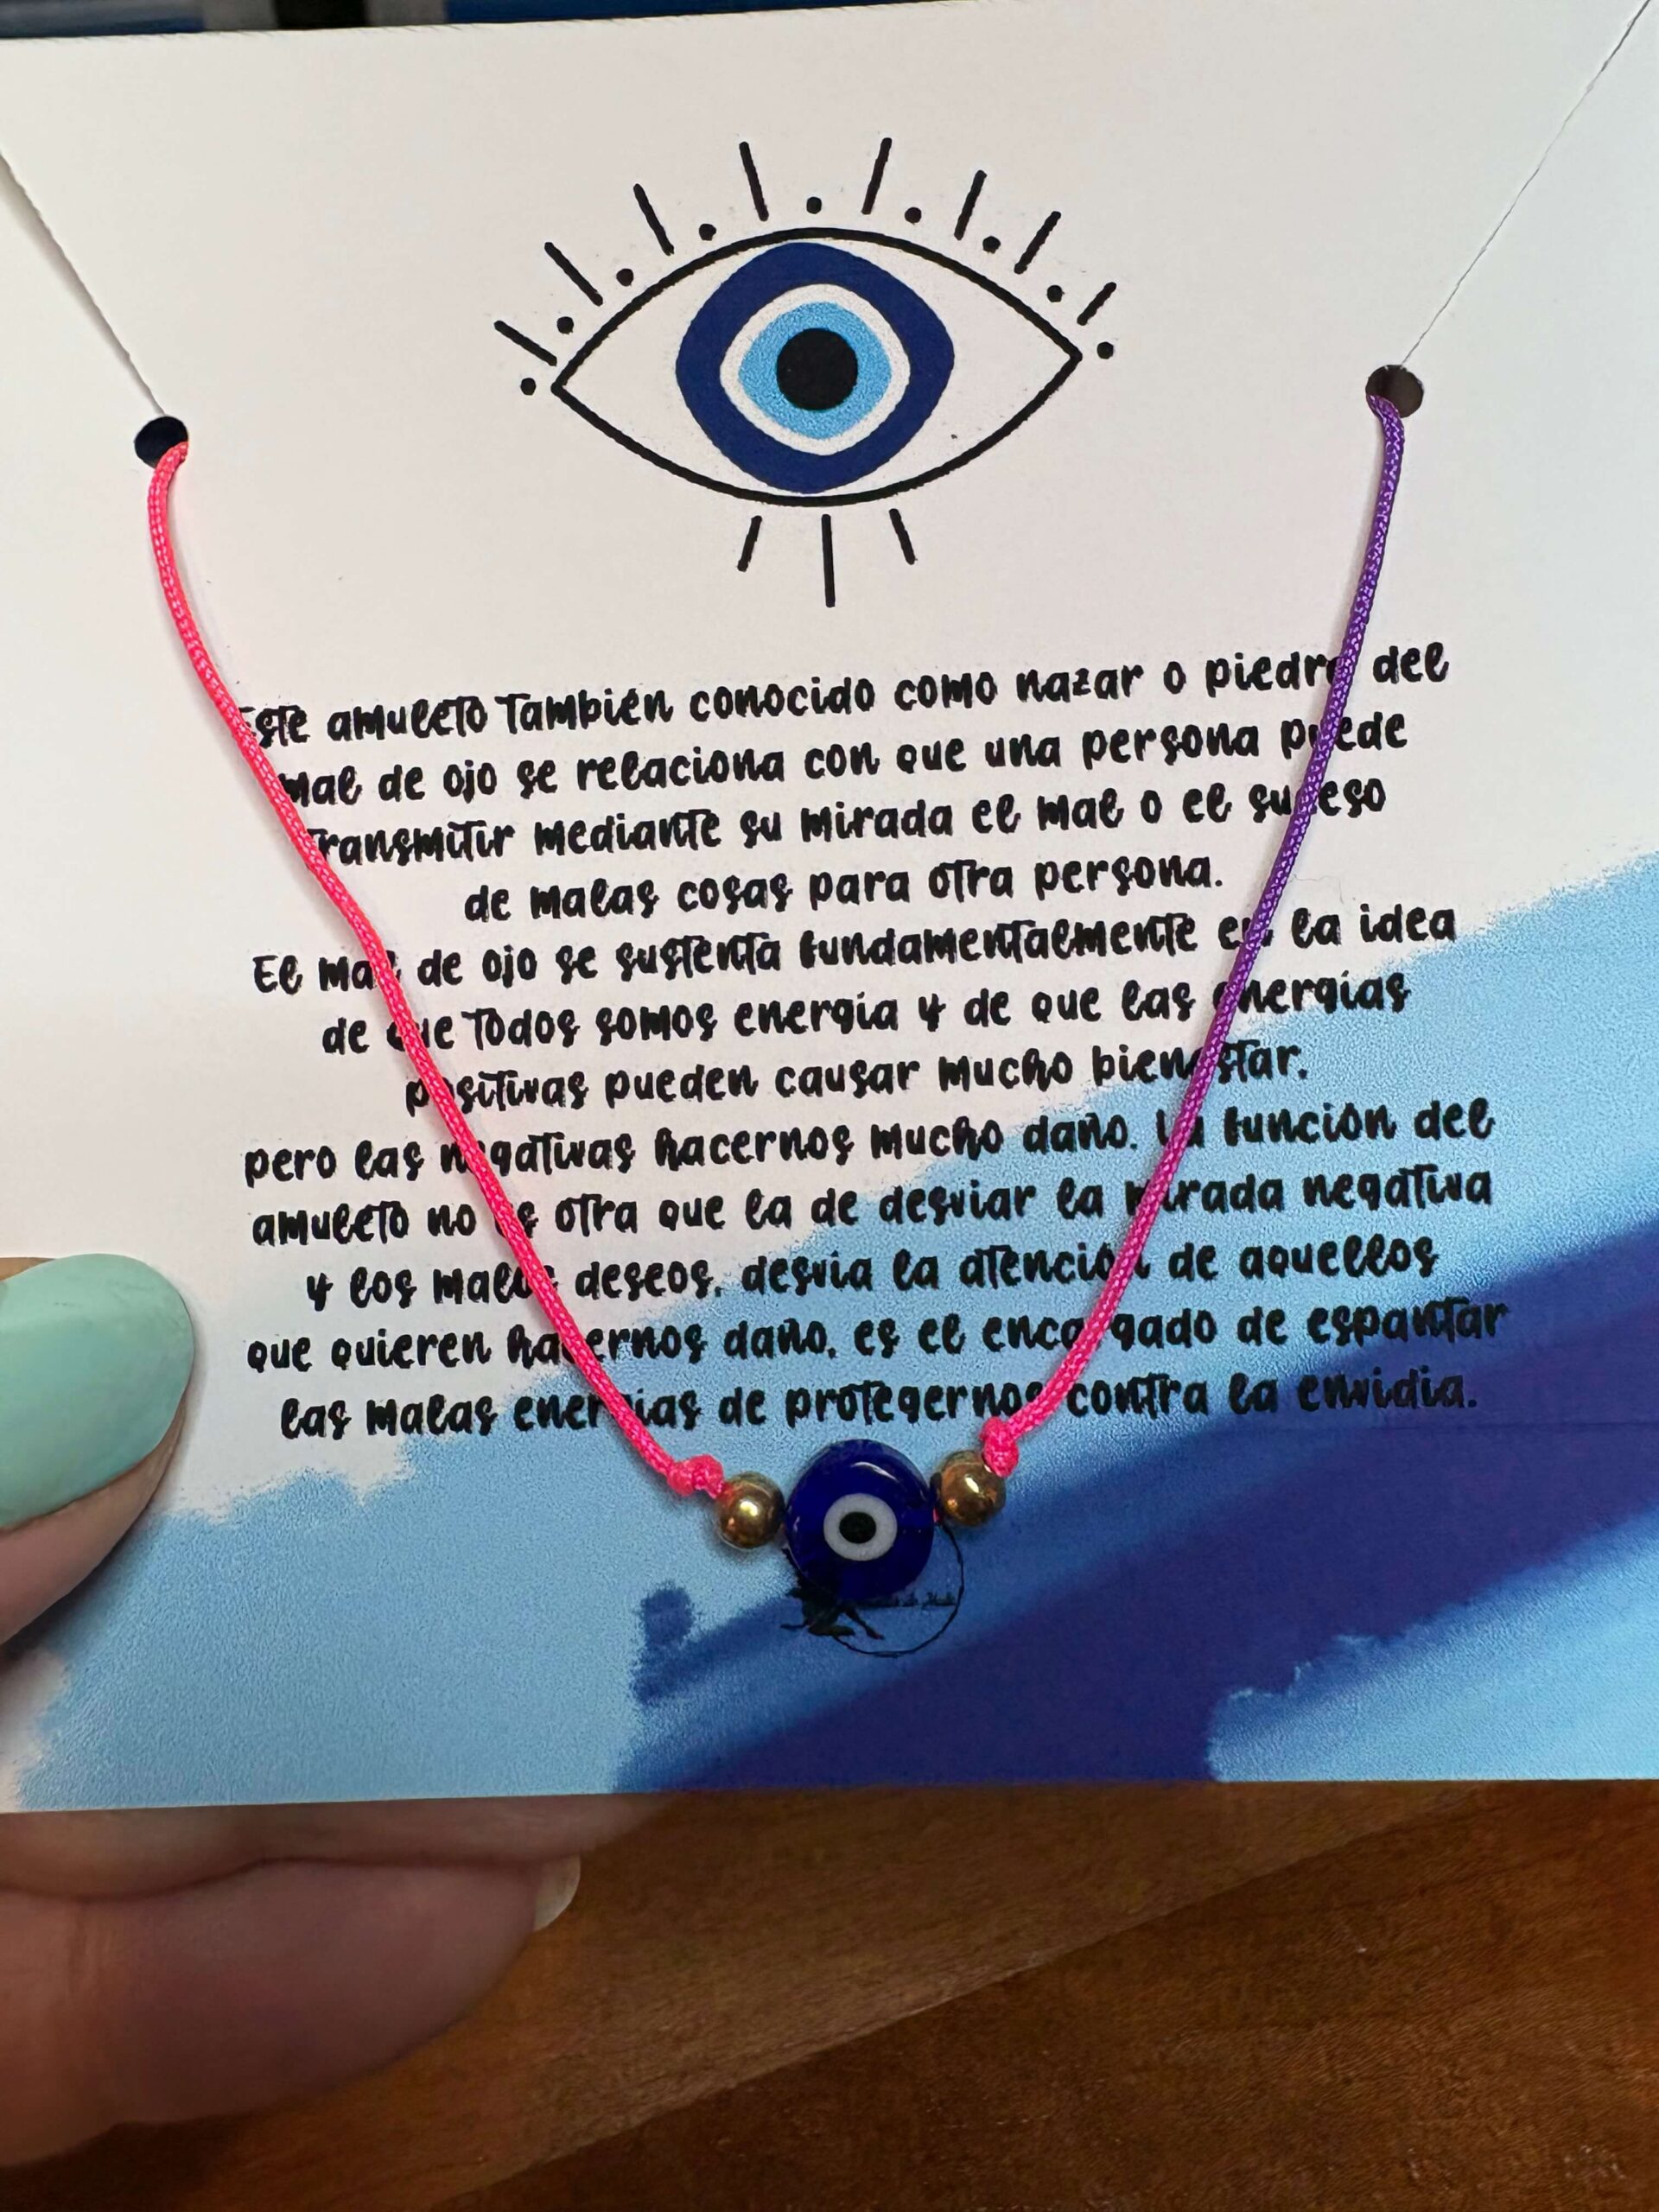 Este amuleto también conocido como nazar o piedra del
mal de ojo se relaciona con que una persona puede
transmitir mediante su mirada el mal o el suceso
de malas cosas para otra persona.
El mal de ojo se sustenta fundamentalmente en la idea
de que todos somos energía y de que las energías
positivas pueden causar mucho bienestar,
pero las negativas hacernos mucho daño. La función del
amuleto no es otra que la de desviar la mirada negativa
y los malos deseos, desvia la atención de aquellos
que quieren hacernos daño, es el encargado de espantar
las malas energias de protegernos contra la envidia.